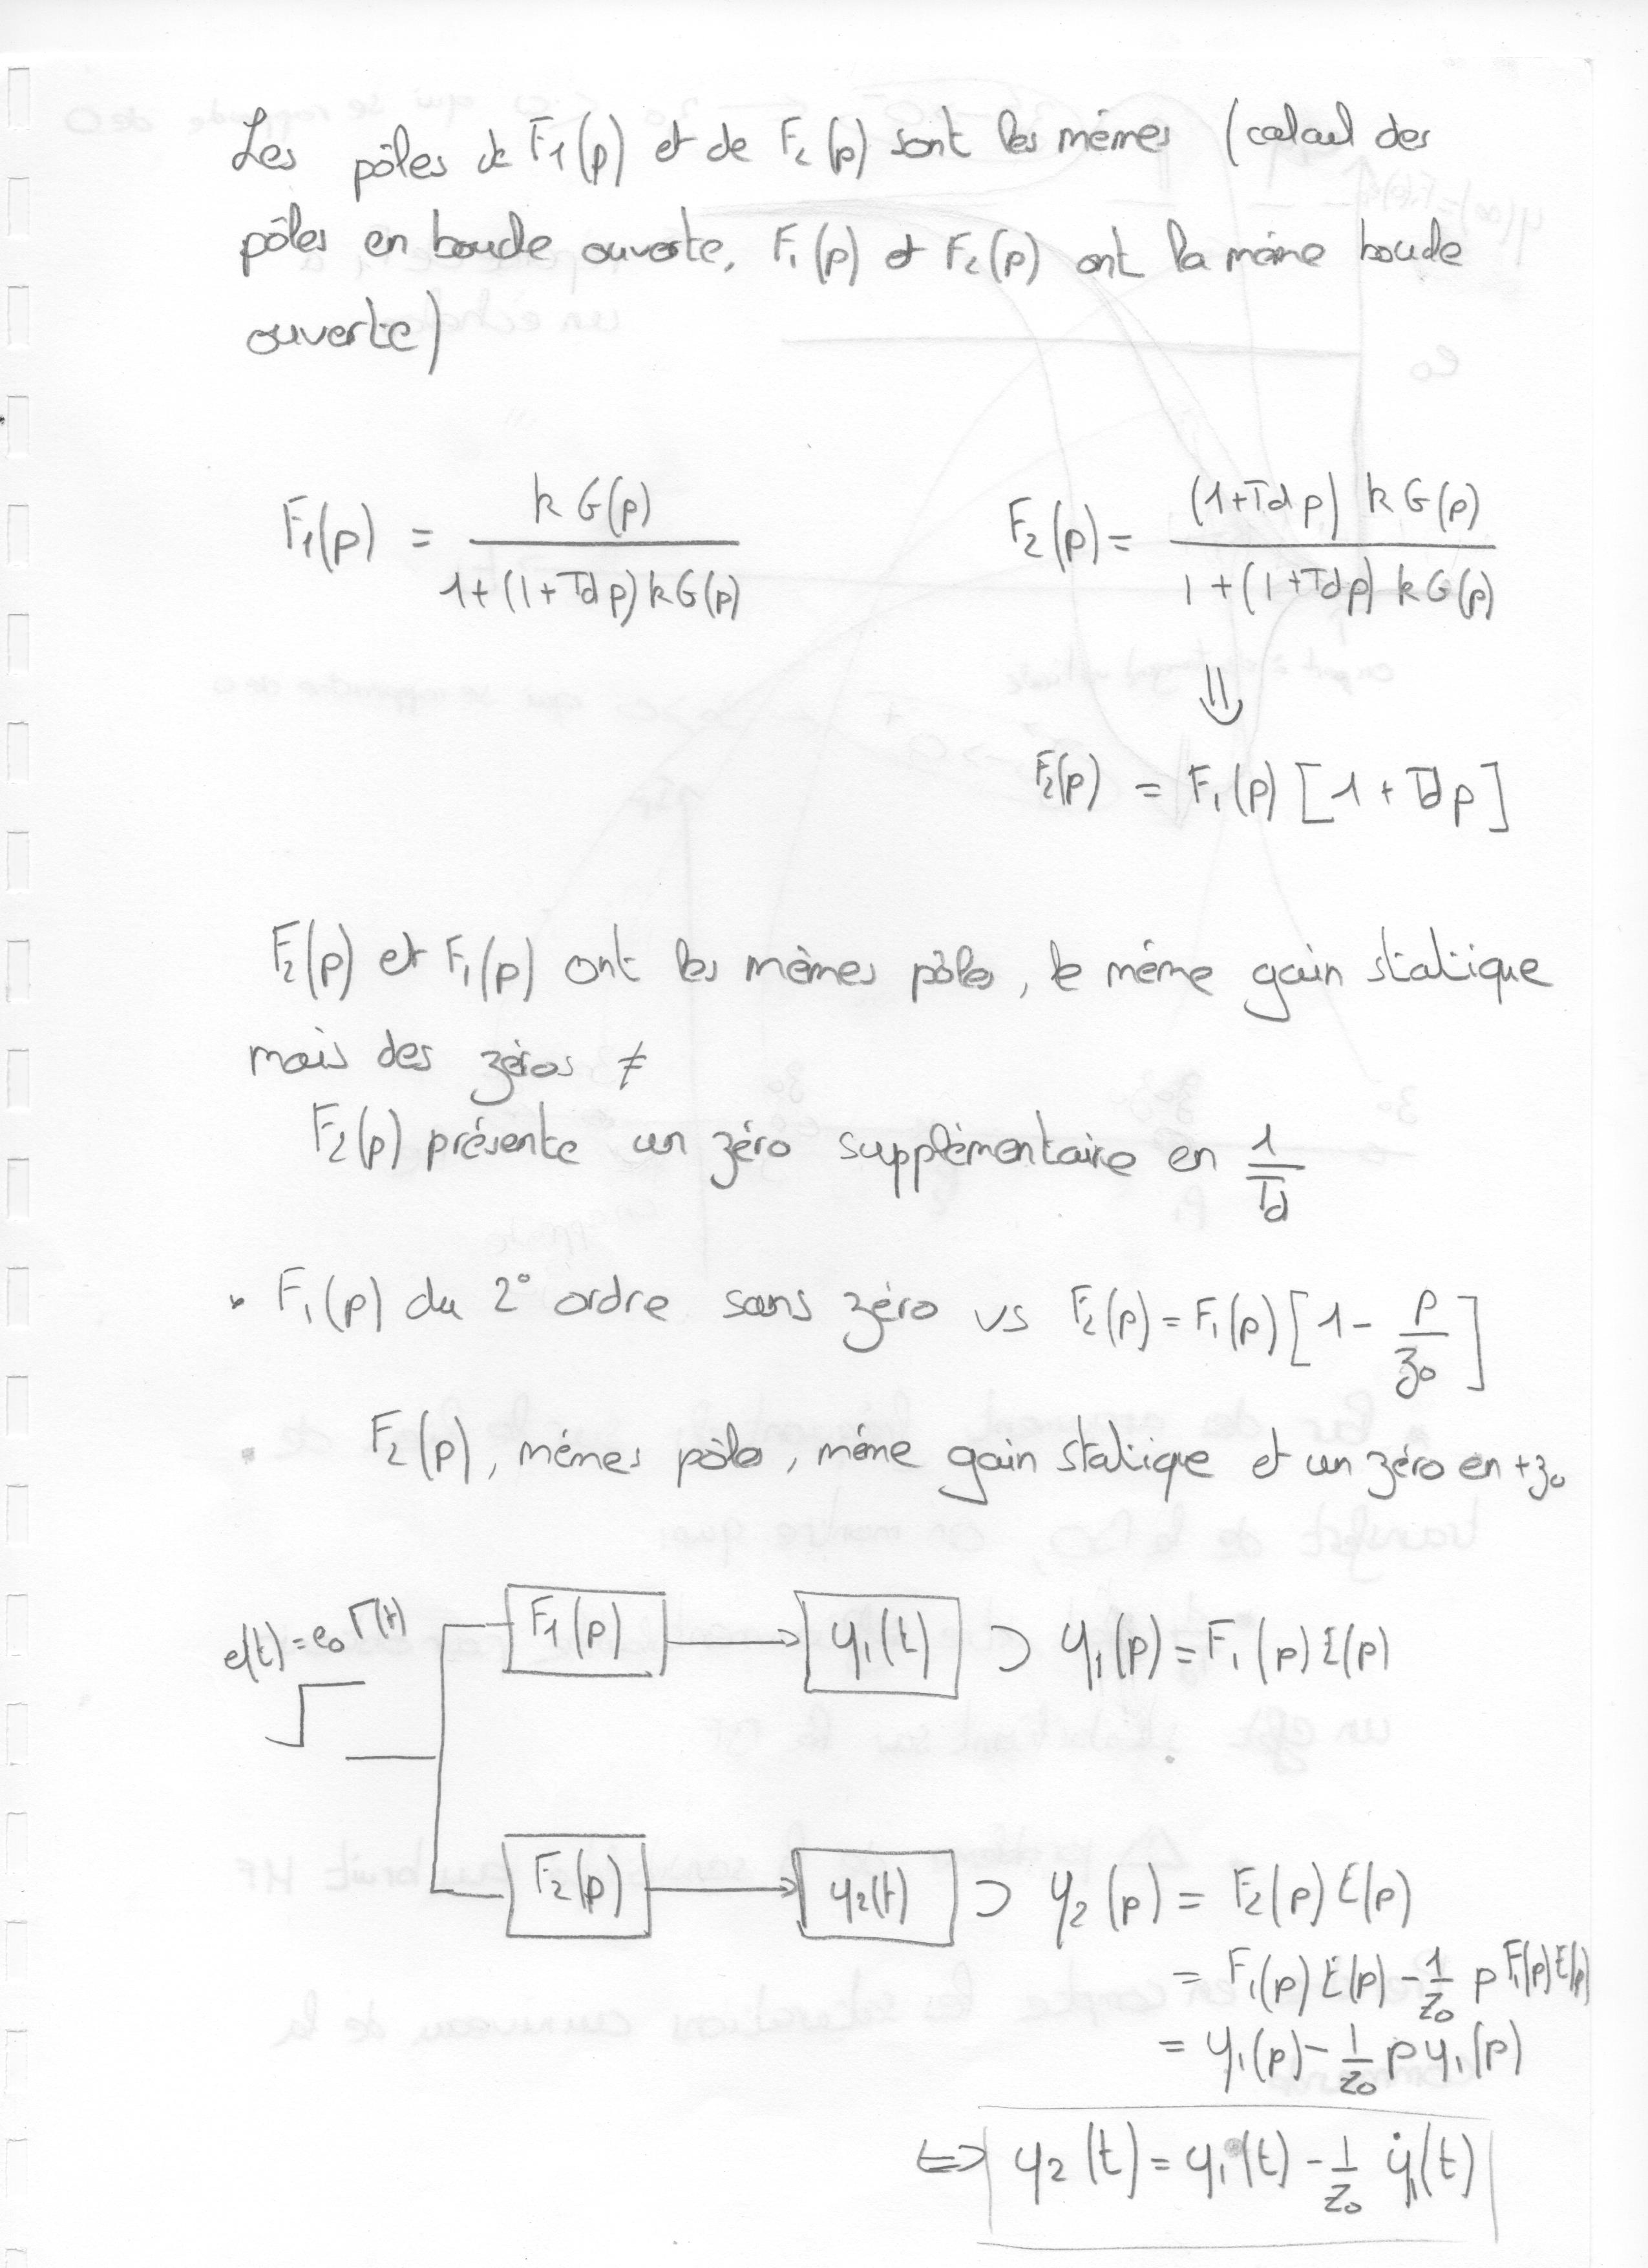 Les pôles de F1(p) et de F2(p) sont les mêmes (calcul des
pôles en boucle ouverte, F1(p) et F2(p) ont la même boucle
ouverte)
F1(p) = k G(p) / 1+(1+Td p) k G(p)
F2(p) = (1+Td p) k G(p) / 1+(1+Td p) k G(p)
⇓
F2(p) = F1(p) [1 + Td p]
F2(p) et F1(p) ont les mêmes pôles, le même gain statique
mais des zéros ≠
F2(p) présente un zéro supplémentaire en 1/Td
• F1(p) du 2° ordre sans zéro vs F2(p) = F1(p) [1 - p/z0]
F2(p), mêmes pôles, même gain statique et un zéro en +z0
e(t) = e0 Γ(t)
F1(p) → y1(t) ⊃ Y1(p) = F1(p) E(p)
F2(p) → y2(t) ⊃ Y2(p) = F2(p) E(p)
= F1(p) E(p) - 1/z0 p F1(p) E(p)
= Y1(p) - 1/z0 p Y1(p)
⇔ y2(t) = y1(t) - 1/z0 ẏ1(t)